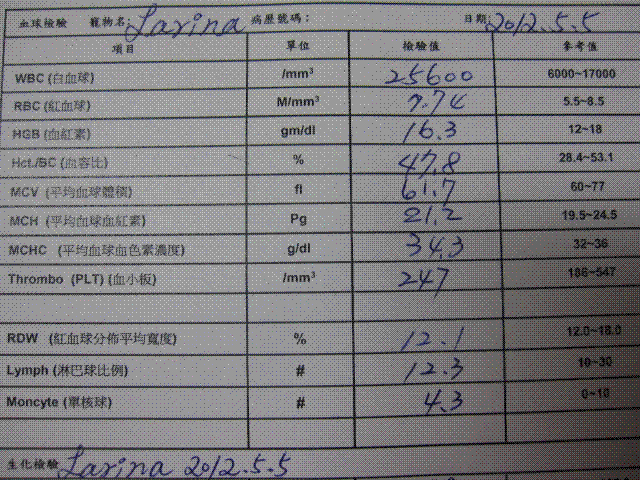 血球檢驗 寵物名: Larina 病歷號碼: 日期: 2012.5.5
項目 單位 檢驗值 參考值
WBC (白血球) /mm³ 25600 6000~17000
RBC (紅血球) M/mm³ 7.74 5.5~8.5
HGB (血紅素) gm/dl 16.3 12~18
Hct./BC (血容比) % 47.8 28.4~53.1
MCV (平均血球體積) fl 61.7 60~77
MCH (平均血球血紅素) Pg 21.2 19.5~24.5
MCHC (平均血球血色素濃度) g/dl 34.3 32~36
Thrombo (PLT) (血小板) /mm³ 247 186~547
RDW (紅血球分佈平均寬度) % 12.1 12.0~18.0
Lymph (淋巴球比例) # 12.3 10~30
Moncyte (單核球) # 4.3 0~10
生化檢驗 Larina 2012.5.5